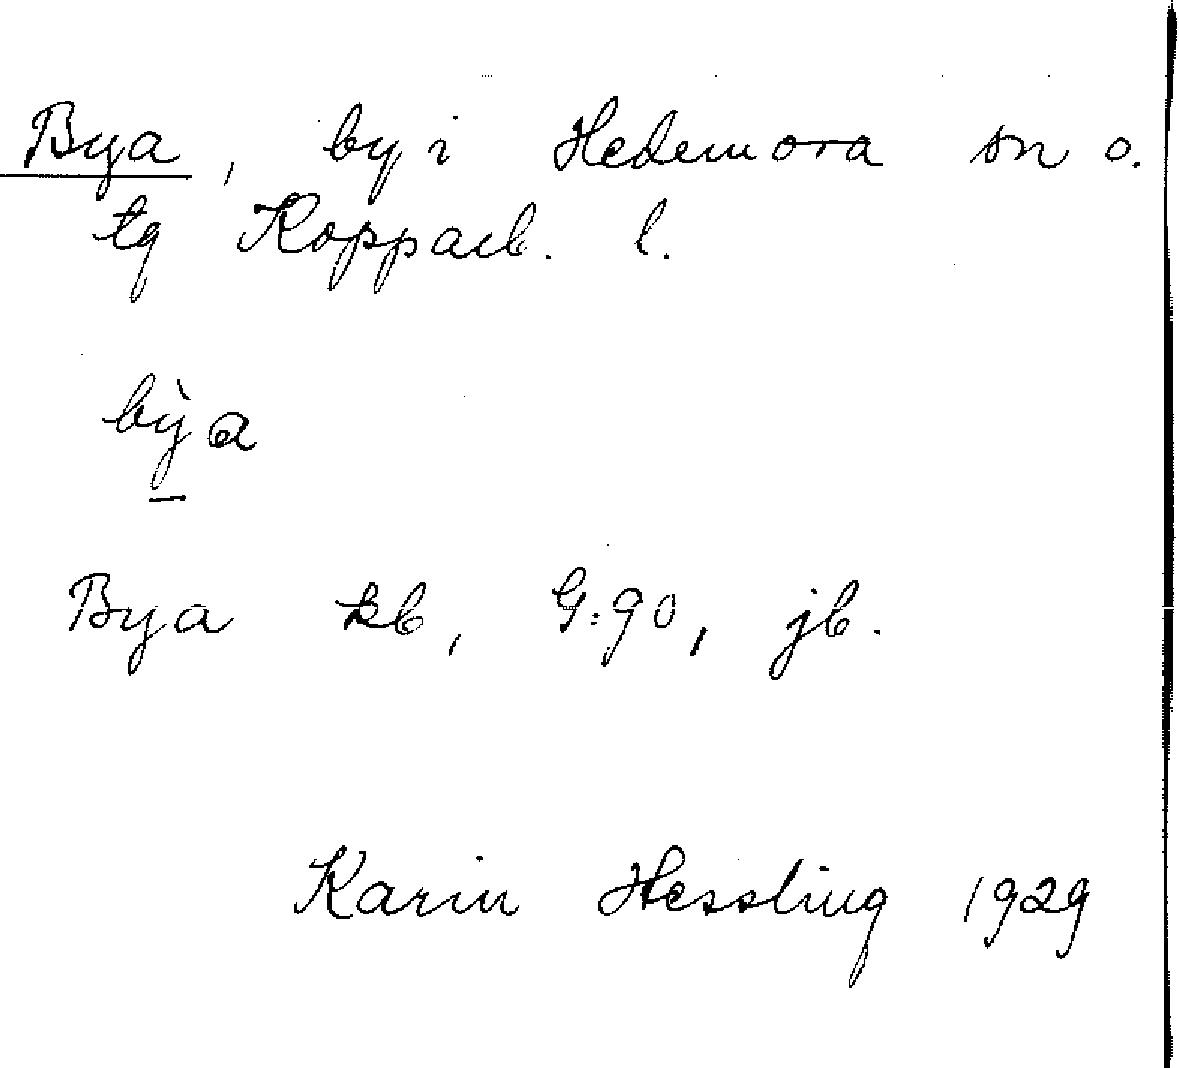 Bya, by i Hedemora sn o.
tg Kopparb. l.
bỳa
Bya kb, G:90, jb.
Karin Hessling 1929